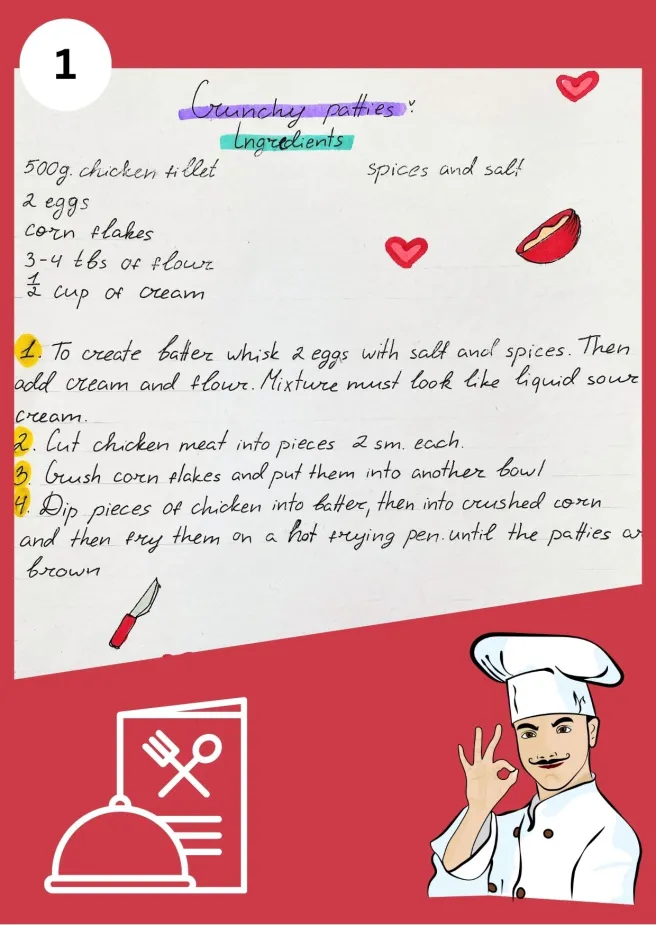 1
Crunchy patties:
Ingredients
500g. chicken fillet
spices and salt
2 eggs
corn flakes
3-4 tbs of flour
1/2 cup of cream
1. To create batter whisk 2 eggs with salt and spices. Then
add cream and flour. Mixture must look like liquid sour
cream.
2. Cut chicken meat into pieces 2 sm. each.
3. Crush corn flakes and put them into another bowl
4. Dip pieces of chicken into batter, then into crushed corn
and then fry them on a hot frying pen. until the patties ar
brown